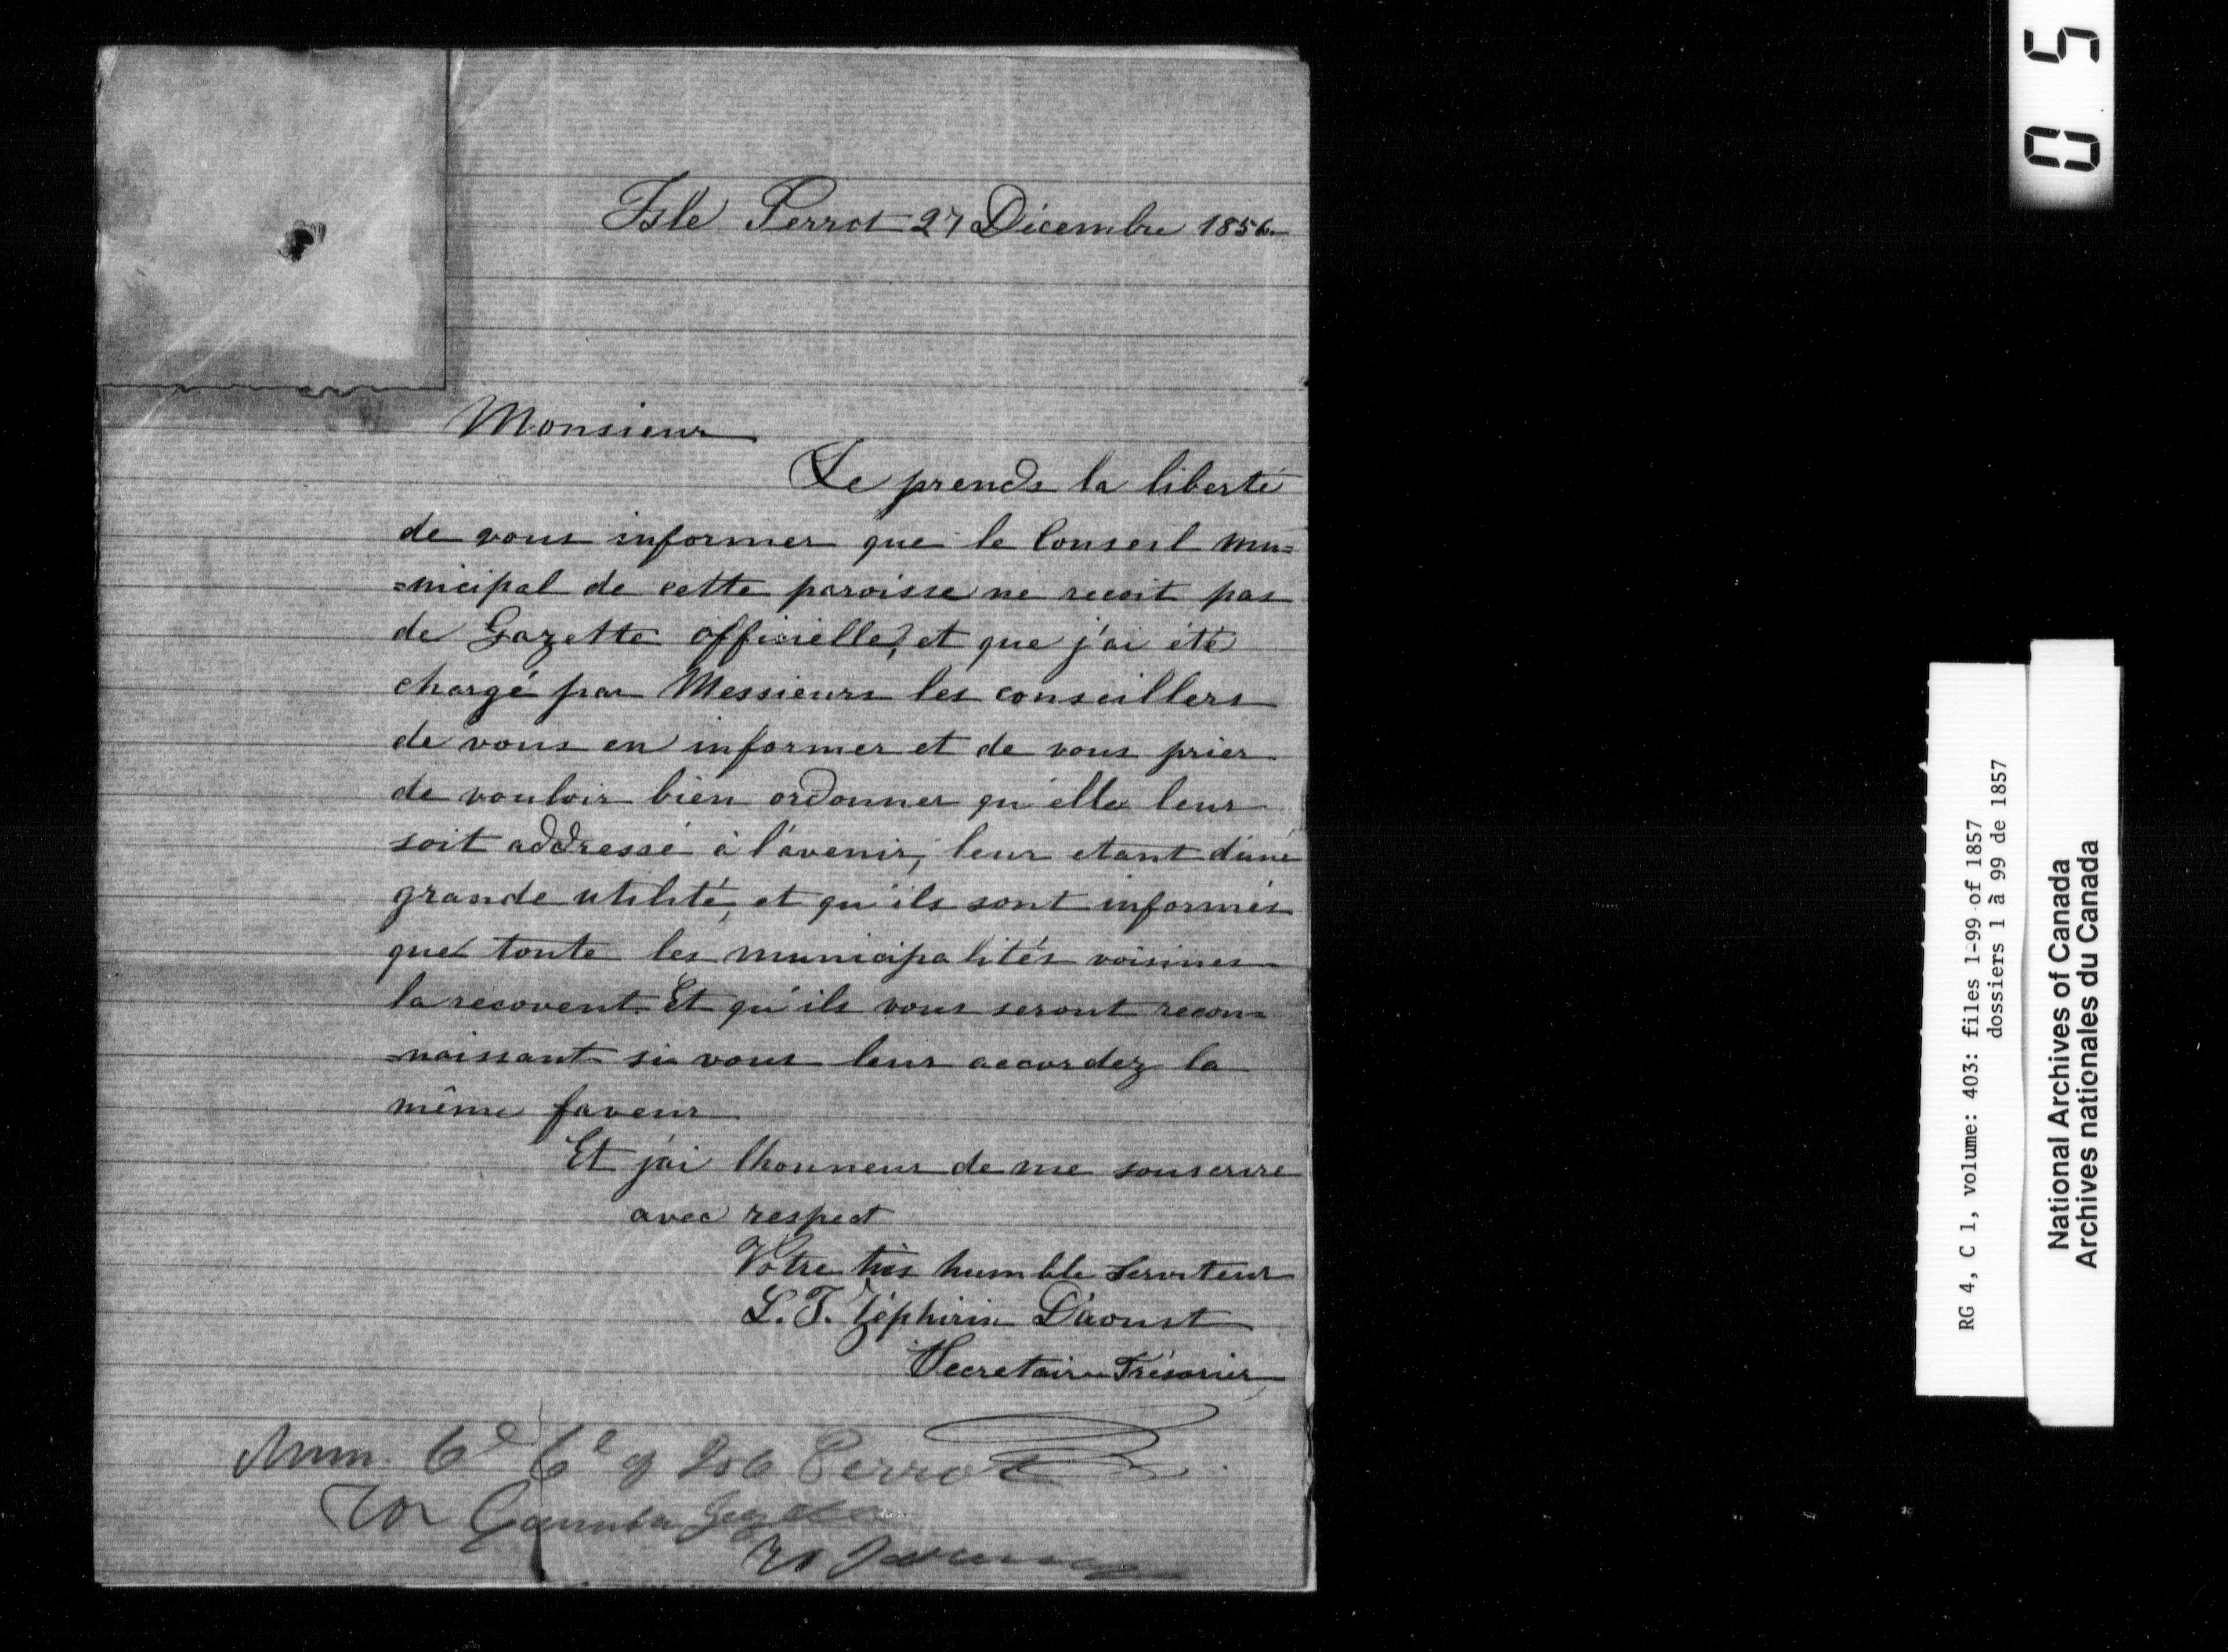 Isle Perrot 27 Décembre 1856
Monsieur
Je prends la liberté
de vous informer que le Conseil Mu=
=nicipal de cette paroisse ne recoit pas
de Gazette Officielle, et que j'ai été
chargé par Messieurs les conseillers
de vous en informer et de vous prier
de vouloir bien ordonner qu'elle leur
soit addressé à l'avenir, leur etant d'une
grande utilité, et qu'ils sont informés
que toute les municipalités voisines
la recovent. Et qu'ils vous seront recon=
=naissant si vous leur accordez la
même faveur
Et j'ai lhonneur de me souscrire
avec respect
Votre très humble Serviteur
L. T. Zéphirin D'aoust
Secretaire Trésorier
Mun. of Isle Perrot
for Gazette
05
RG 4, C 1, volume: 403: files 1-99 of 1857
dossiers 1 à 99 de 1857
National Archives of Canada
Archives nationales du Canada